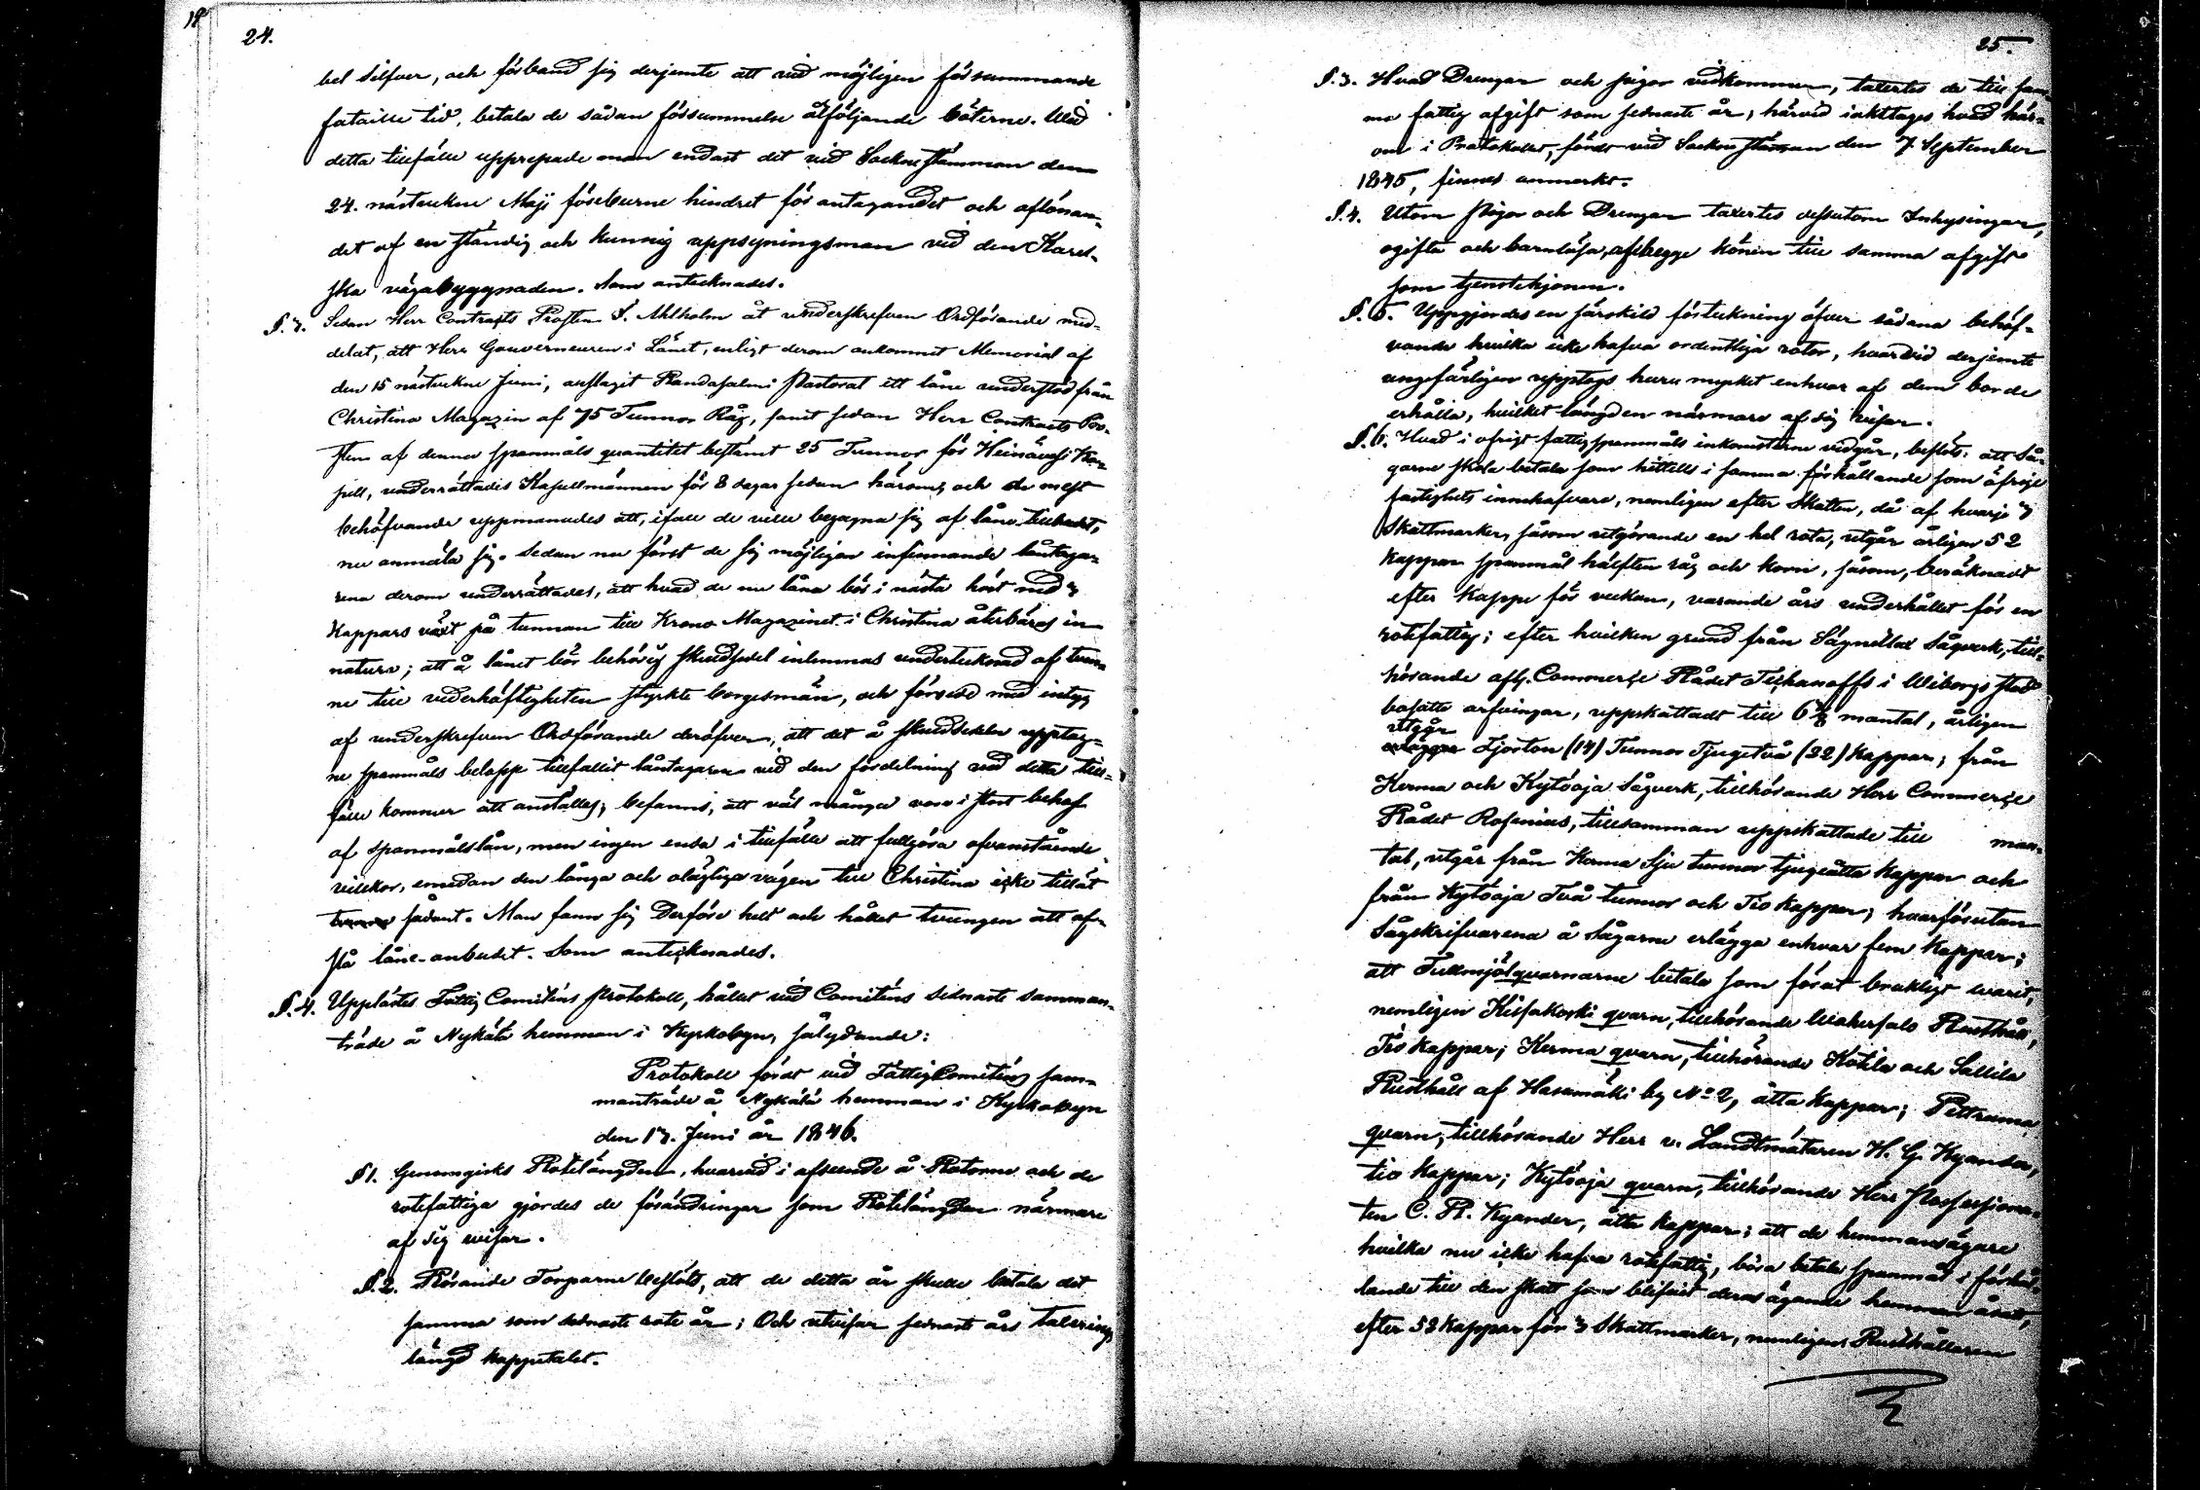 24.
bel Silfver, och förband sig derjemte att vid möjligen försummande
fataille tid, betala de sådan försummelse åtföljande böterne. Wid
detta tillfälle upprepade man endast det vid Sockne stämman den
24. nästvekne Maji förelburne hindret för antagandet och aflönan-
det af en ständig och kunnig uppsyningsman vid den Karel-
ska vägabyggnaden. Som antecknades.
§. 3. Sedan Herr Contracts Prosten S. Ahlholm åt underskrefven Ordförande med-
delat, att Herr Gouverneuren i Länet, enligt derom ankommit Memorial af
den 15 nästvekne Juni, anslagit Randasalmi Pastorat ett låne understöd från
Christina Magazin af 75 Tunnor Råg, samt sedan Herr Contracts Pro-
sten af denna spanmåls quantitet bestämt 25 Tunnor för Heinävesi Ka-
pell, underrättades Kapellmännen för 8 dagar sedan härom, och de mest
behöfvande uppmanades att, ifall de ville begagna sig af låne tillbudet,
nu anmäla sig. Sedan nu först de sig möjligen infinnande låntaga-
rena derom underrättades, att hvad de nu låna bör i nästa höst med 3
Kappars växt på tunnan till Krono Magazinet i Christina återbäras in
natura; att å lånet bör behörig skuldsedel inlemnas undertecknad af tven-
ne till vederhäftigheten styrkte borgesmän, och försedd med intyg
af underskrefven Ordförande deröfver, att det å skuldsedeln upptag-
ne spanmåls belopp tillfallit låntagaren vid den fördelning vid detta till-
fälle kommer att anställas; befanns, att väl många voro i stort behof
af spanmålslån, men ingen enda i tillfälle att fullgöra ofvanstående
villkor, emedan den långa och olägliga vägen till Christina icke tillåt
sådant. Man fann sig derföre helt och hållet tvungen att af-
stå låne-anbudet. Som antecknades.
§. 4. Upplästes Fattig Comiténs protokoll, hållet vid Comiténs sednaste samman-
träde å Nykälä hemman i Kyrkobyn, sålydande:
Protokoll fördt vid Fattig Comiténs sam-
manträde å Nykälä hemman i Kyrkobyn
den 13. Juni år 1846.
§ 1. Genomgicks Rotelängden, hvarvid i afseende å Rotorne och de
rotefattiga gjordes de förändringar som Rotelängden närmare
af sig visar.
§. 2. Rörande Torparne beslöts, att de detta år skulle betala det
samma som sednaste rote år; Och utvisar sednaste års Taxerings
längd kappetalet.
25.
§. 3. Hvad Drengar och pigor vidkommer, taxertes de till sam-
ma fattig afgift som sednaste år; härvid iakttages hvad här-
om i Protokollet, fördt vid Sockne stämman den 7 September
1845, finnes anmerkt.
§. 4. Utom Pigor och Drengar taxertes dessutom Inhysingar,
ogifta och barnlösa, af begge könen till samma afgift
som tjenstehjonen.
§. 5. Uppgjordes en särskild förteckning öfver sådana behöf-
vande hvilka icke hafva ordentliga rotor, hvarvid derjemte
ungefärligen upptogs huru mycket enhvar af dem borde
erhålla, hvilket längden närmare af sig visar.
§. 6. Hvad i öfrigt fattig spanmåls inkomsterne vidgår, beslöts: att Så-
garne skola betala som hittills i samma förhållande som öfrige
fastighets innehafvare, nemligen efter Skatten, då af hvarje 3
Skattmarker, såsom utgörande en hel rota, utgår årligen 52
Kappar spanmål hälften råg och korn, såsom, beräknadt
efter Kappe för veckan, varande års underhållet för en
rotefattig; efter hvilken grund från Sågnillad Sågverk, till-
hörande afl. Commerce Rådet Tichanoffs i Wiborgs stad
bosatte arfvingar, uppskattadt till 6 7/8 mantal, årligen
utgår
Fjorton (14) Tunnor Tjugetvå (22) Kappar; från
Kerma och Kytöoja Sågverk, tillhörande Herr Commerce
Rådet Rosenius, tillsamman uppskattade till man-
tal, utgår från Kerma Sju tunnor tjugeåtta Kappar och
från Kytöoja Två tunnor och Tio Kappar; hvarförutan
Sågskrifvarena å Sågarne erlägga enhvar fem Kappar;
att Tullmjölqvarnarne betala som förut brukligt warit,
nemligen Kissakoski qvarn, tillhörande Wakersalo Rusthåll,
Tio kappar; Kerma qvarn, tillhörande Kotila och Sallila
Rusthåll af Hasumäki by No 2, åtta kappar; Pettruma
qvarn, tillhörande Herr v. Landtmätaren H. G. Kyander,
tio kappar; Kytöoja qvarn, tillhörande Herr Possessiona-
ten C. R. Kyander, åtta kappar; att de hemmansägare
hvilka nu icke hafva rotefattig, böra betala spanmål i förhål-
lande till den skatt som blifvit deras ägande hemman åsatt,
efter 52 Kappar för 3 Skattmarker, nemligen Rusthållaren